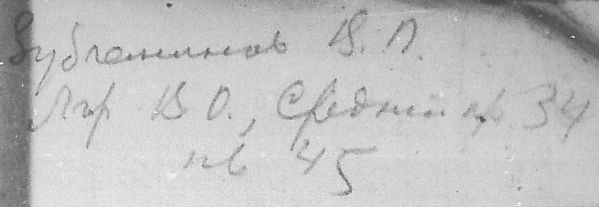 Зубчанинов В. П.
Лгр В О., Средний пр. 34
кв 45